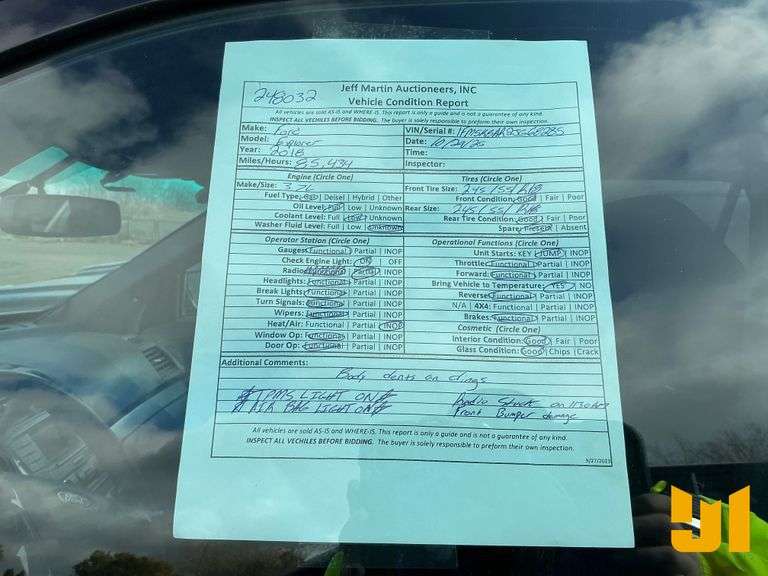 Jeff Martin Auctioneers, INC
248032
Vehicle Condition Report
All vehicles are sold AS-IS and WHERE-IS. This report is only a guide and is not a guarantee of any kind.
INSPECT ALL VECHILES BEFORE BIDDING. The buyer is solely responsible to preform their own inspection.
Make: Ford
VIN/Serial #:
Model: Explorer
Date:
Year: 2018
Time:
Miles/Hours: 85,434
Inspector:
Engine (Circle One)
Tires (Circle One)
Make/Size: 3.7L
Front Tire Size: 245/55/R18
Fuel Type: Gas | Deisel | Hybrid | Other
Front Condition: Good | Fair | Poor
Oil Level: Full | Low | Unknown
Rear Size: 245/55/R18
Coolant Level: Full | Low | Unknown
Rear Tire Condition: Good | Fair | Poor
Washer Fluid Level: Full | Low | Unknown
Spare: Present | Absent
Operator Station (Circle One)
Operational Functions (Circle One)
Gauges: Functional | Partial | INOP
Unit Starts: KEY | JUMP | INOP
Check Engine Light: ON | OFF
Throttle: Functional | Partial | INOP
Radio: Functional | Partial | INOP
Forward: Functional | Partial | INOP
Headlights: Functional | Partial | INOP
Bring Vehicle to Temperature: YES | NO
Break Lights: Functional | Partial | INOP
Reverse: Functional | Partial | INOP
Turn Signals: Functional | Partial | INOP
N/A | 4X4: Functional | Partial | INOP
Wipers: Functional | Partial | INOP
Brakes: Functional | Partial | INOP
Heat/Air: Functional | Partial | INOP
Cosmetic (Circle One)
Window Op: Functional | Partial | INOP
Interior Condition: Good | Fair | Poor
Door Op: Functional | Partial | INOP
Glass Condition: Good | Chips | Crack
Additional Comments:
Body dents on dings
TPMS LIGHT ON
Radio Stuck on 1130 AM
AIR BAG LIGHT ON
Front Bumper damage
All vehicles are sold AS-IS and WHERE-IS. This report is only a guide and is not a guarantee of any kind.
INSPECT ALL VECHILES BEFORE BIDDING. The buyer is solely responsible to preform their own inspection.
5/27/2023
Ford